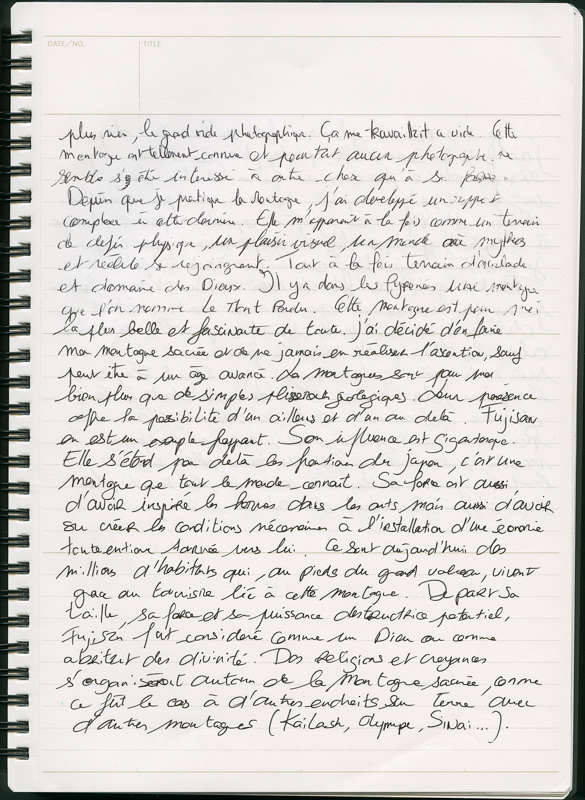 DATE/NO. TITLE
plus rien, le grand vide photographique. Ça me travaillait a vide. Cette
montagne est tellement connue et pourtant aucun photographe ne
semble s'être intéressé à autre chose qu'à sa
Depuis que je pratique la montagne, j'ai développé un rapport
complexe à cette dernière. Elle m'apparaît à la fois comme un terrain
de défis physique, un plaisir visuel, un monde où mythes
et réalité se rejoingnent. Tout à la fois terrain d'escalade
et domaine des Dieux. Il y a dans les Pyrénées une montagne
que l'on nomme Le Mont Perdu. Cette montagne est pour moi
la plus belle et fascinante de toute. j'ai décidé d'en faire
ma montagne sacrée et de ne jamais en réaliser l'ascention, sauf
peut être à un âge avancé. Les montagnes sont pour moi
bien plus que de simples plissements géologiques. Leur présence
offre la possibilité d'un ailleurs et d'un au delà. Fujisan
en est un exemple frappant. Son influence est gigantesque.
Elle s'étend par delà les frontières du japon, c'est une
montagne que tout le monde connaît. Sa force est aussi
d'avoir inspiré les hommes dans les arts mais aussi d'avoir
su créer les conditions nécessaires à l'installation d'une économie
toute entière tournée vers lui. Ce sont aujourd'hui des
millions d'habitants qui, au pieds du grand volcan, vivent
grace au tourisme lié à cette montagne. De part sa
taille, sa force et sa puissance destructrice potentiel,
Fujisan fut considéré comme un Dieu ou comme
abritant des divinité. Des Religions et croyances
s'organisèrent autour de la Montagne sacrée, comme
ce fût le cas à d'autres endroits sur Terre avec
d'autres montagnes (Kailash, Olympe, Sinaï...).